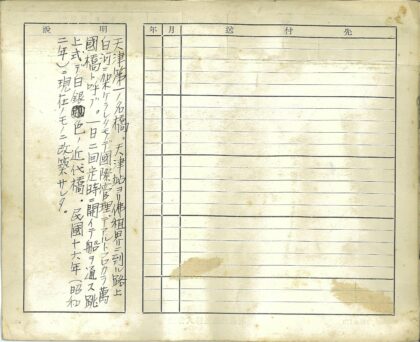 説明
天津第一ノ名橋、天津站ヨリ佛租界ニ到ル路上
白河ニ架ケラレタモノデ國際管理デアルトコロカラ萬
國橋ト呼ブ。一日二回定時ニ開イテ船ヲ通ス跳
上式デ白銀色ノ近代橋。民國十六年(昭和
二年)ニ現在ノモノニ改築サレタ。
年 月 送付先